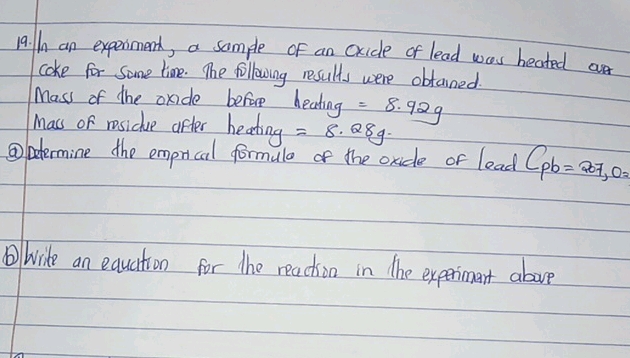 19. In an experiment, a sample of an oxide of lead was heated over
coke for some time. The following results were obtained.
Mass of the oxide before heating = 8.92g
Mass of residue after heating = 8.28g.
a) Determine the emprical formula of the oxide of lead (pb = 207, O=
b) Write an equation for the reaction in the experiment above